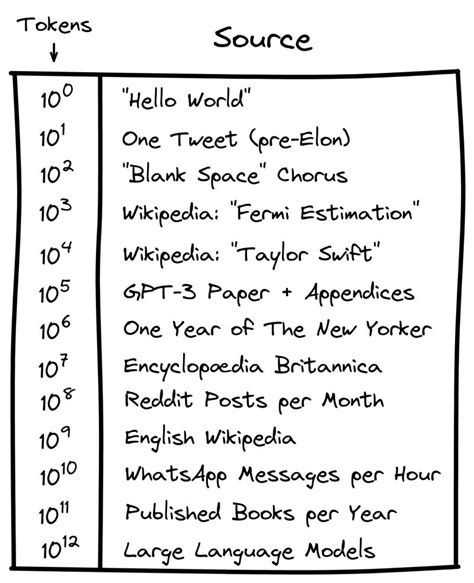 Tokens
Source
10⁰ "Hello World"
10¹ One Tweet (pre-Elon)
10² "Blank Space" Chorus
10³ Wikipedia: "Fermi Estimation"
10⁴ Wikipedia: "Taylor Swift"
10⁵ GPT-3 Paper + Appendices
10⁶ One Year of The New Yorker
10⁷ Encyclopædia Britannica
10⁸ Reddit Posts per Month
10⁹ English Wikipedia
10¹⁰ WhatsApp Messages per Hour
10¹¹ Published Books per Year
10¹² Large Language Models